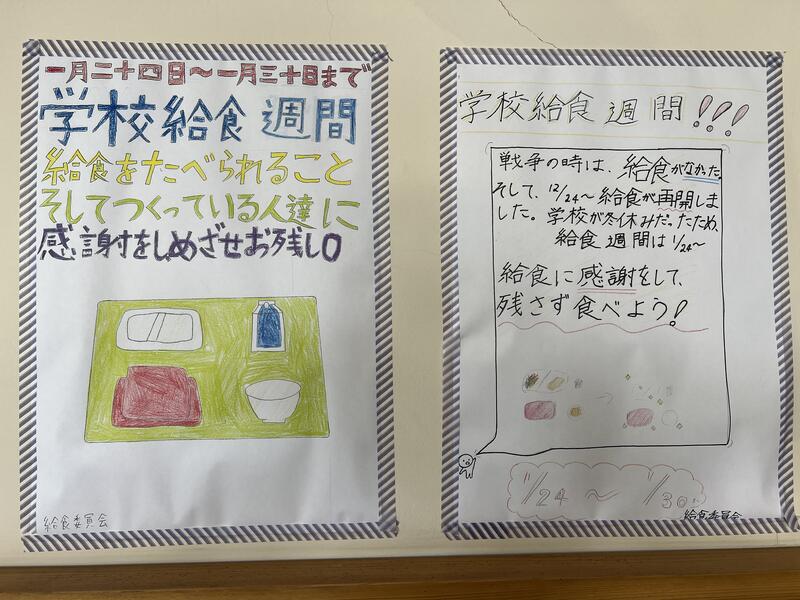 一月二十四日～一月三十日まで
学校給食週間
給食をたべられること
そしてつくっている人達に
感謝をしめざせお残し0
給食委員会
学校給食週間!!!
戦争の時は、給食がなかった。
そして、12/24～給食が再開しま
した。学校が冬休みだったため、
給食週間は1/24～
給食に感謝をして、
残さず食べよう!
1/24～1/30
給食委員会